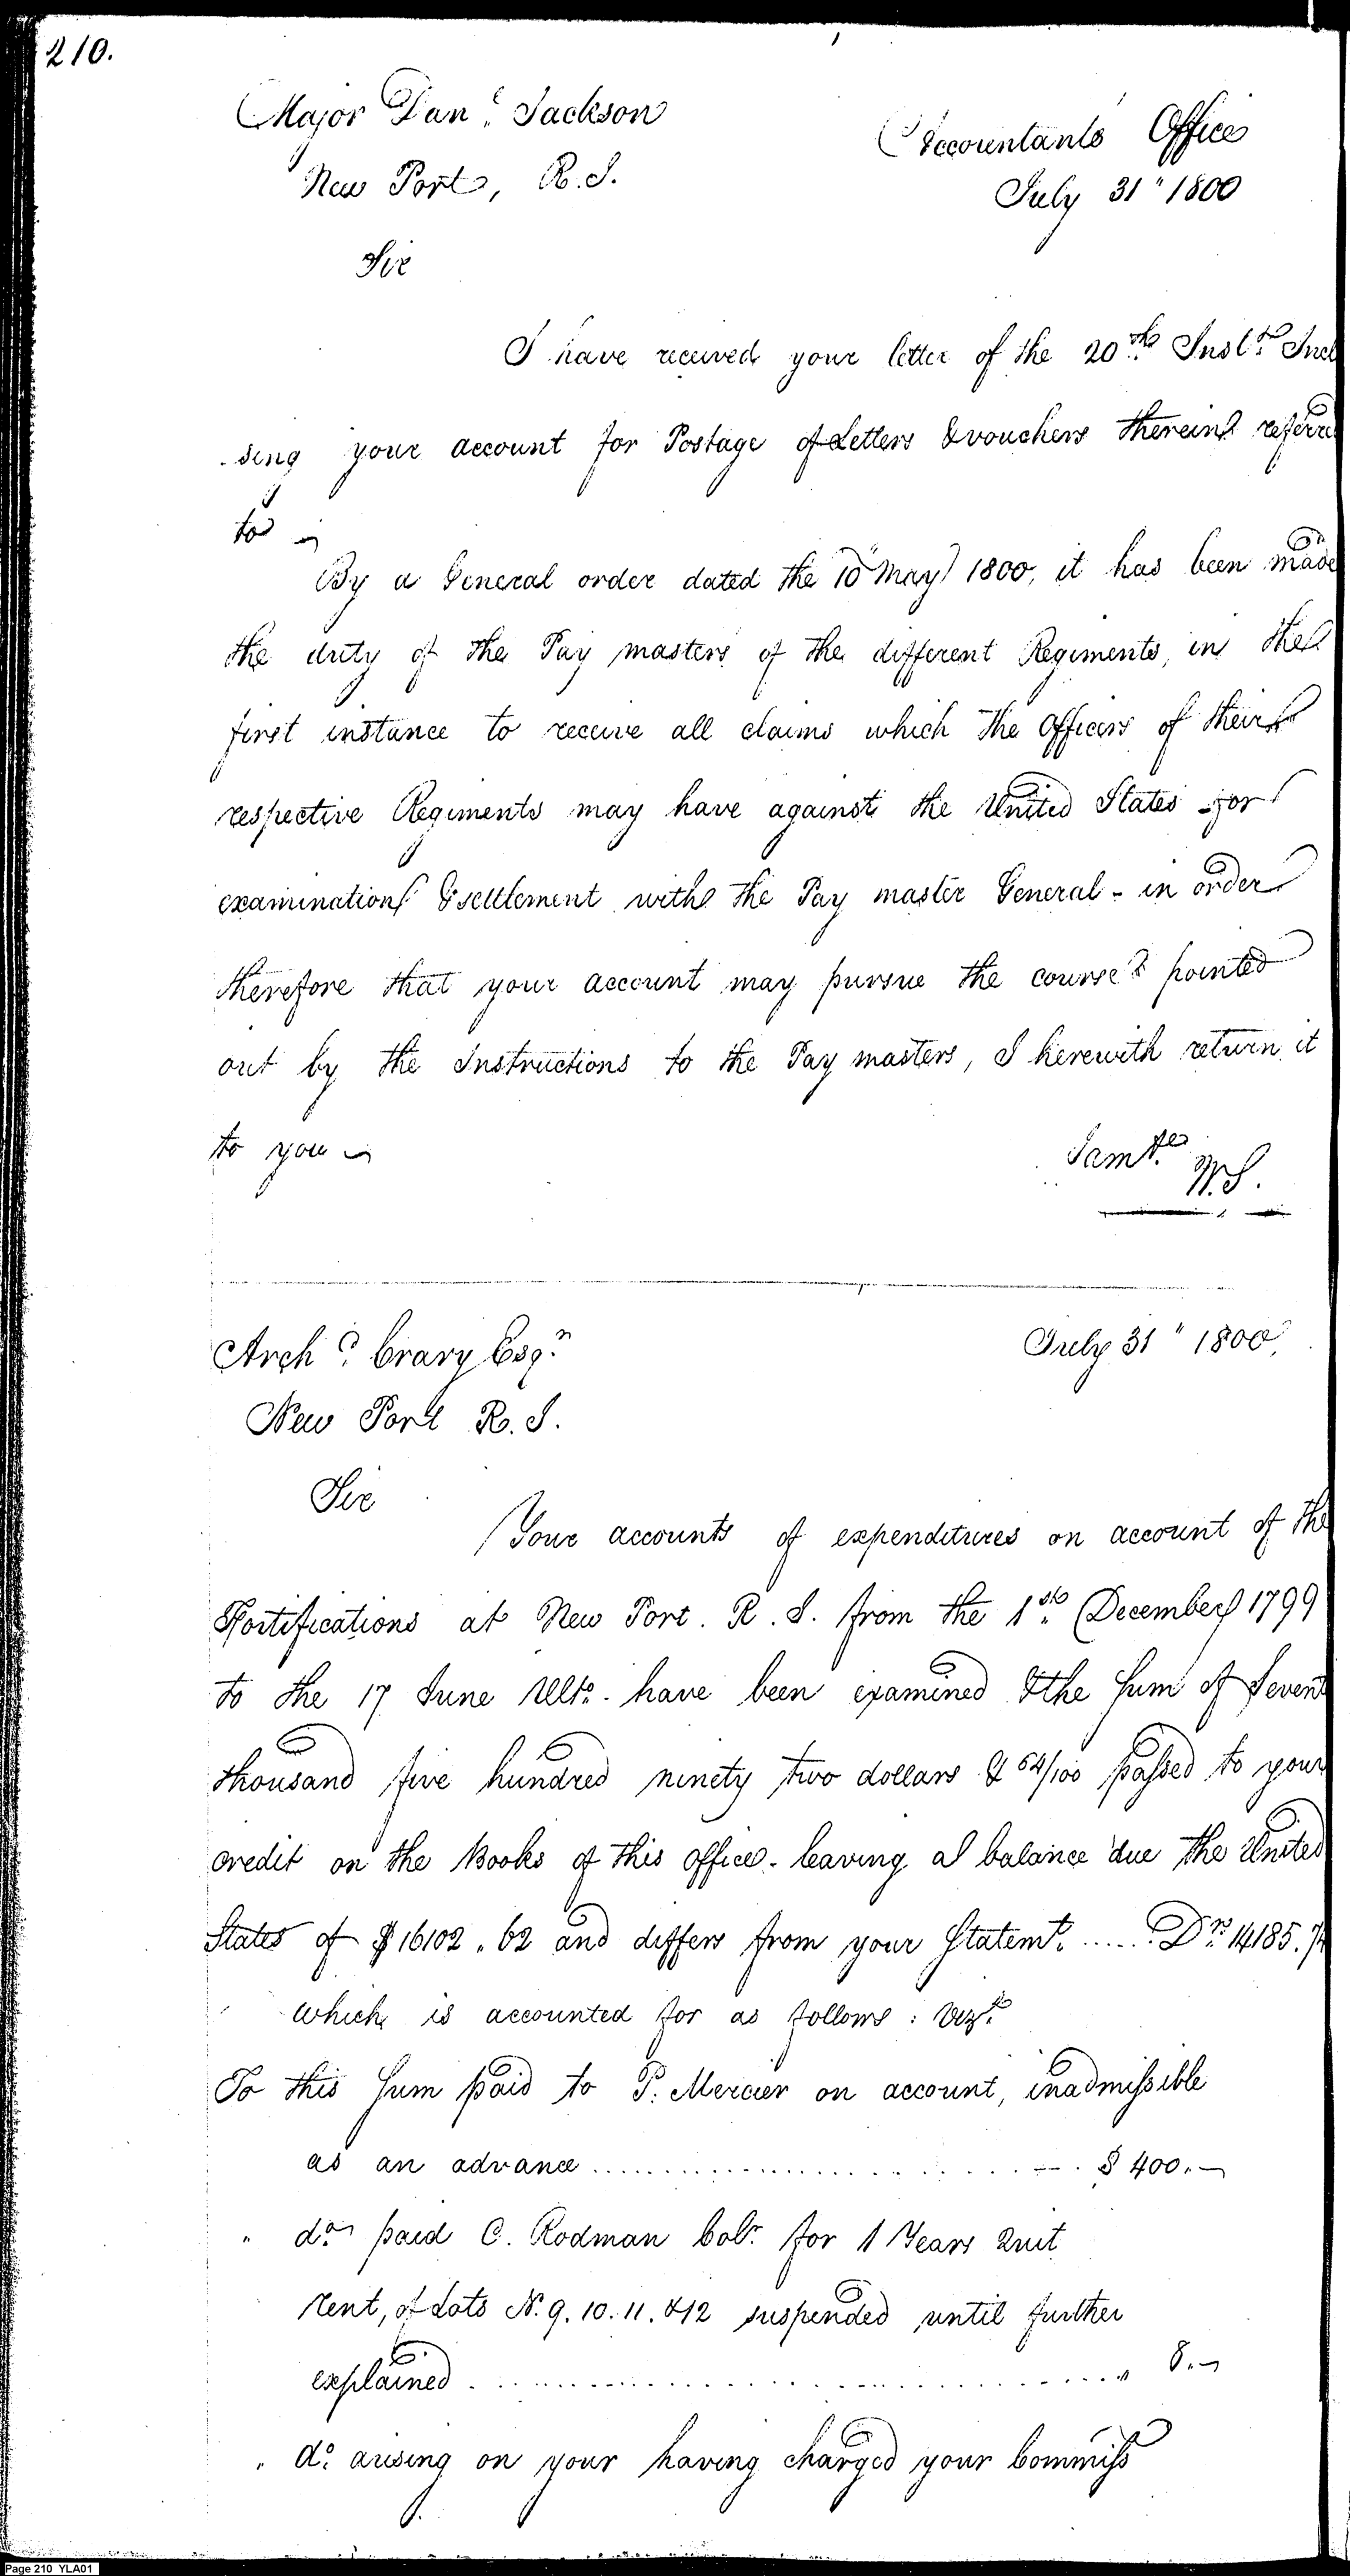 210.
Major Danl. Jackson
New Port, R. I.
Accountants Office
July 31" 1800
Sir
I have received your letter of the 20th. Inst. Incl
sing your account for Postage of Letters & vouchers therein referre
to
By a General order dated the 10" May 1800, it has been made
the duty of the Pay masters of the different Regiments, in the
first instance to receive all claims which the Officers of their
respective Regiments may have against the United States for
examination & settlement with the Pay master General - in order
therefore that your account may pursue the course pointed
out by the Instructions to the Pay masters, I herewith return it
to you
W.S.
Archd. Crary Esqr.
July 31" 1800.
New Port R. I.
Sir
Your accounts of expenditures on account of the
Fortifications at New Port. R. I. from the 1st. December 1799
to the 17 June Ulto. have been examined & the Sum of Seven
thousand five hundred ninety two dollars & 64/100 passed to your
credit on the Books of this office - leaving a balance due the United
States of $ 16102.62 and differs from your Statemt. ...... Drs. 14185.
which is accounted for as follows : Vizt.
To this Sum paid to P. Mercier on account, inadmissible
as an advance .......... $ 400.-
" do. paid C. Rodman Colr. for 1 Years Quit
rent, of Lots N. 9. 10. 11. & 12 suspended until further
explained .......... " 8.-
" do. arising on your having charged your Commiss
Page 210 YLA01